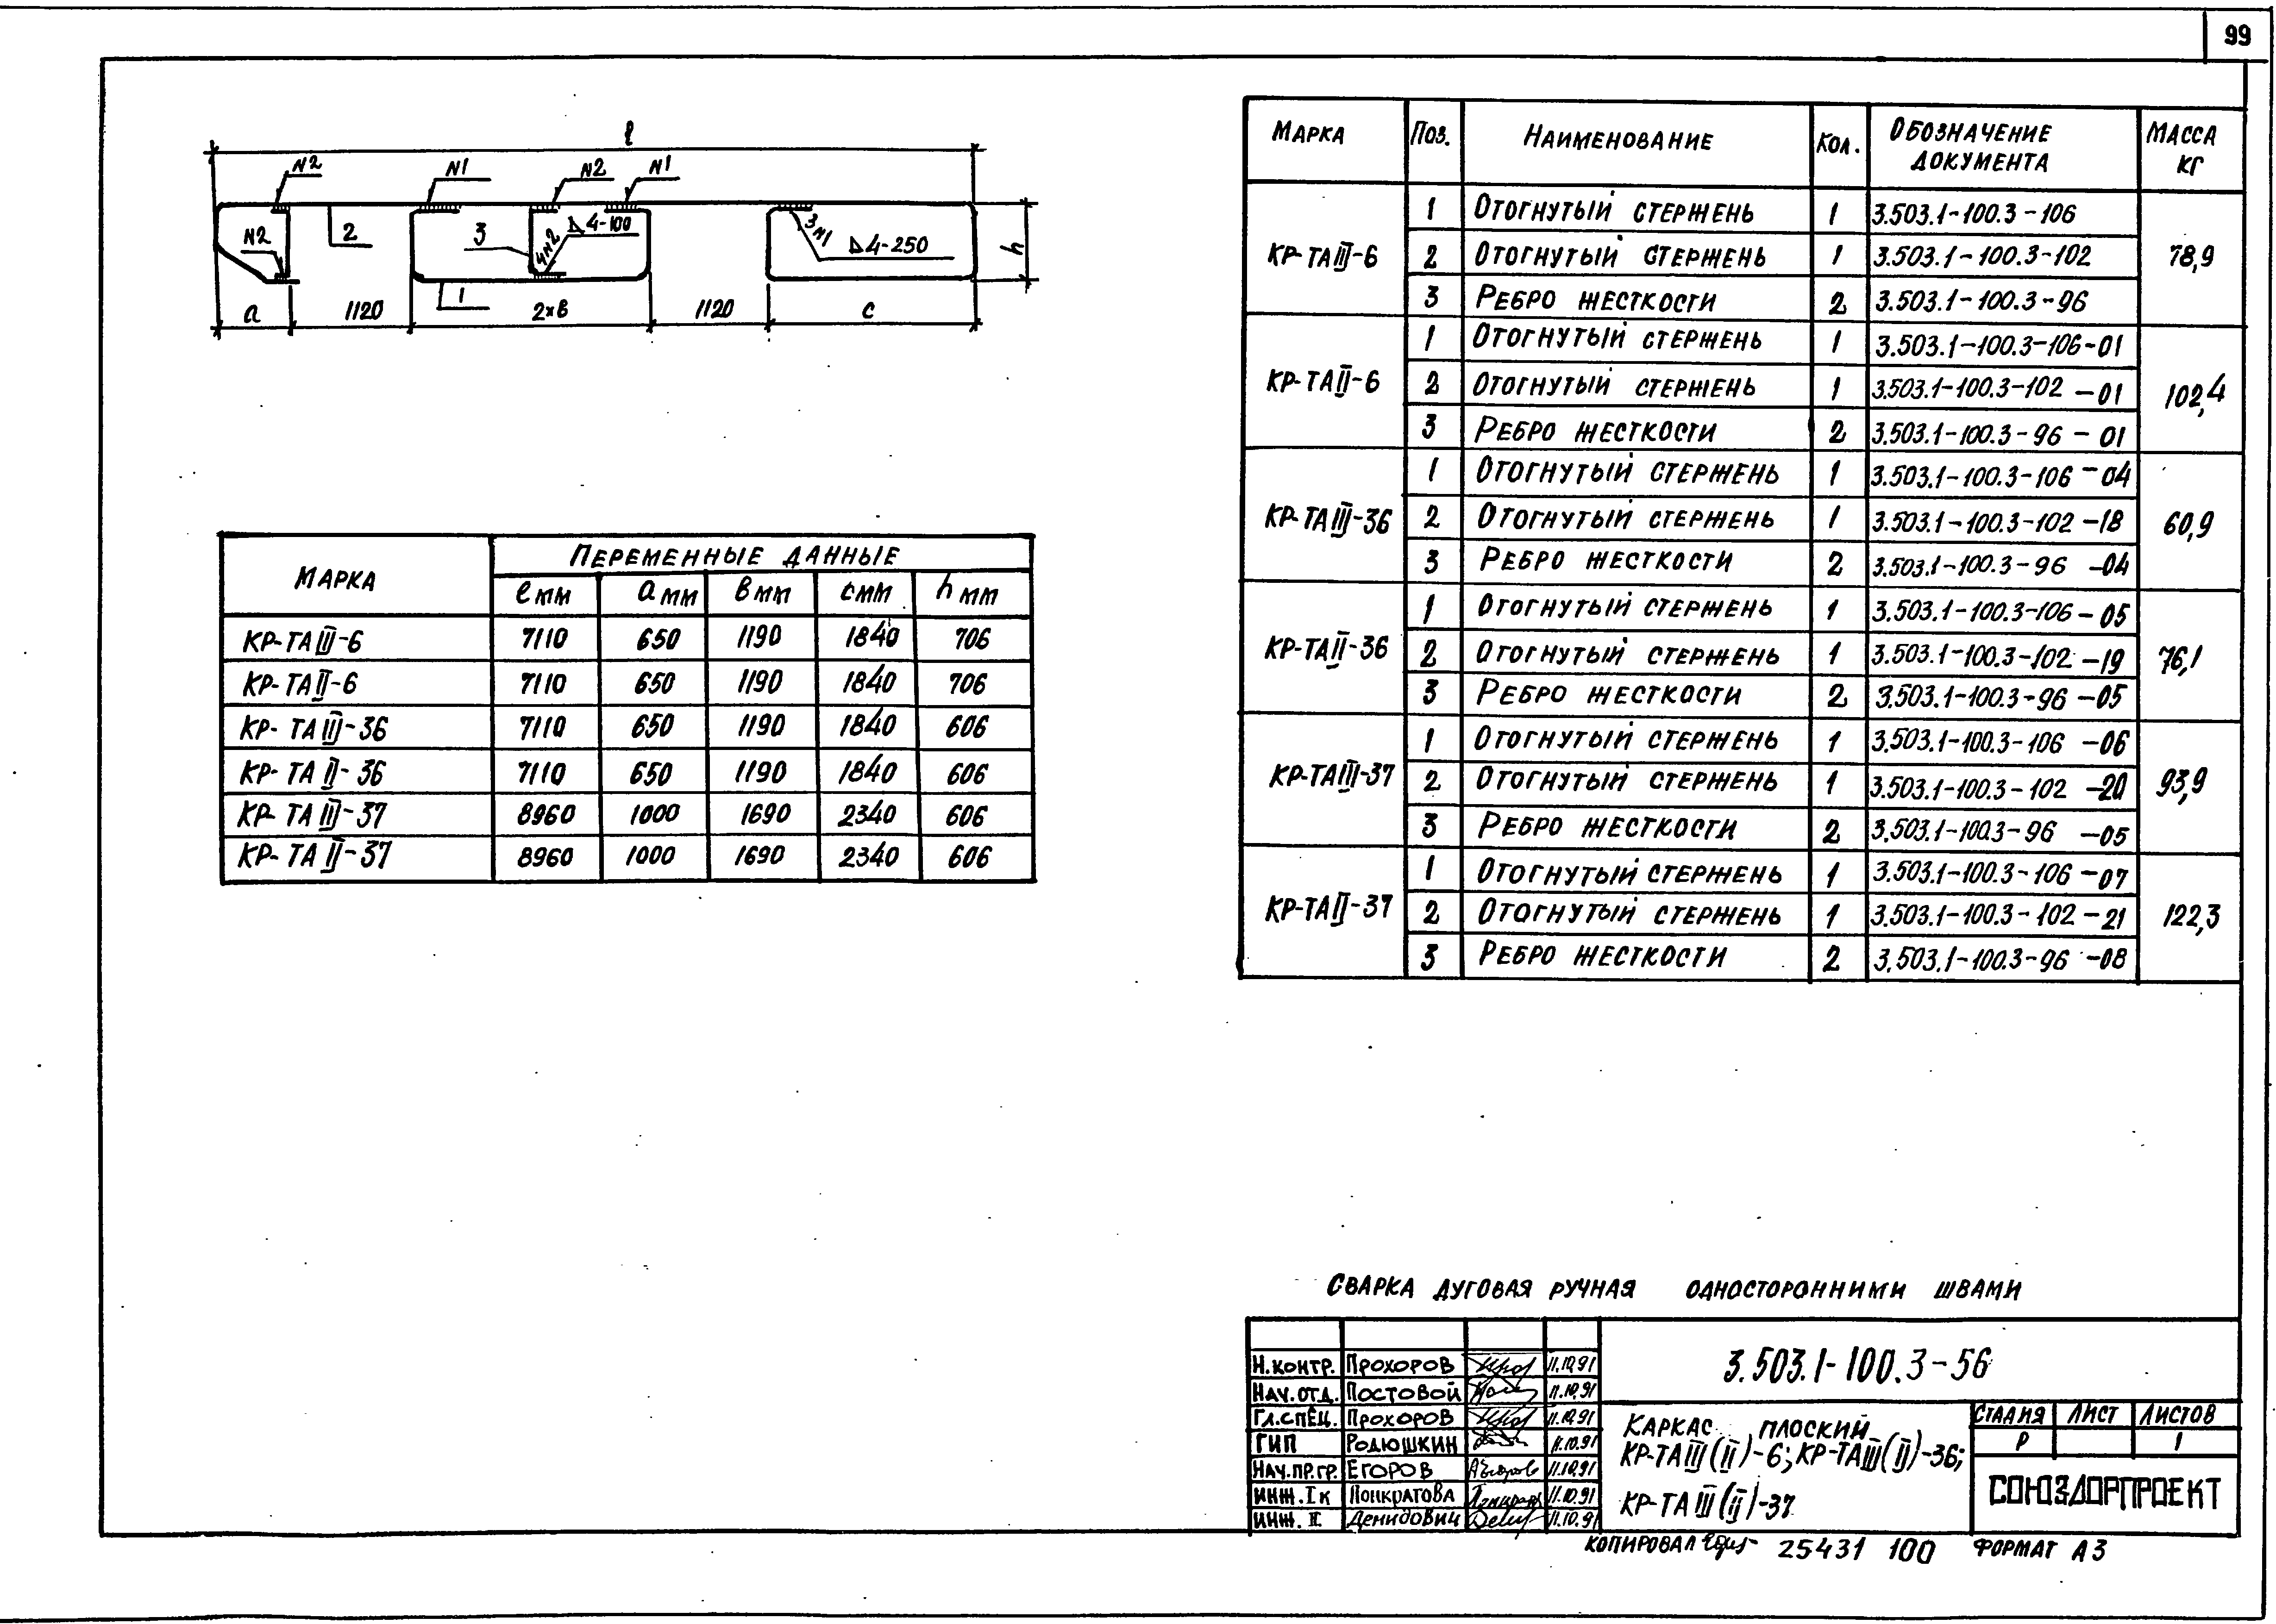 99
ℓ
N2 N1 N2 N1
N2 2 3 4N2 ⊿4-100 3N1 ⊿4-250 h
1
а 1120 2×в 1120 с
Марка Переменные данные
ℓ мм а мм в мм с мм h мм
КР-ТАIII-6 7110 650 1190 1840 706
КР-ТАII-6 7110 650 1190 1840 706
КР-ТАIII-36 7110 650 1190 1840 606
КР-ТАII-36 7110 650 1190 1840 606
КР-ТАIII-37 8960 1000 1690 2340 606
КР-ТАII-37 8960 1000 1690 2340 606
Марка Поз. Наименование Кол. Обозначение документа Масса кг
КР-ТАIII-6 78,9
1 Отогнутый стержень 1 3.503.1-100.3-106
2 Отогнутый стержень 1 3.503.1-100.3-102
3 Ребро жесткости 2 3.503.1-100.3-96
КР-ТАII-6 102,4
1 Отогнутый стержень 1 3.503.1-100.3-106-01
2 Отогнутый стержень 1 3.503.1-100.3-102-01
3 Ребро жесткости 2 3.503.1-100.3-96-01
КР-ТАIII-36 60,9
1 Отогнутый стержень 1 3.503.1-100.3-106-04
2 Отогнутый стержень 1 3.503.1-100.3-102-18
3 Ребро жесткости 2 3.503.1-100.3-96-04
КР-ТАII-36 76,1
1 Отогнутый стержень 1 3.503.1-100.3-106-05
2 Отогнутый стержень 1 3.503.1-100.3-102-19
3 Ребро жесткости 2 3.503.1-100.3-96-05
КР-ТАIII-37 93,9
1 Отогнутый стержень 1 3.503.1-100.3-106-06
2 Отогнутый стержень 1 3.503.1-100.3-102-20
3 Ребро жесткости 2 3.503.1-100.3-96-05
КР-ТАII-37 122,3
1 Отогнутый стержень 1 3.503.1-100.3-106-07
2 Отогнутый стержень 1 3.503.1-100.3-102-21
3 Ребро жесткости 2 3.503.1-100.3-96-08
Сварка дуговая ручная односторонними швами
Н.контр. Прохоров 11.10.91
Нач.отд. Постовой 11.10.91
Гл.спец. Прохоров 11.10.91
ГИП Родюшкин 11.10.91
Нач.пр.гр. Егоров 11.10.91
Инж. Iк Понкратова 11.10.91
Инж. II Денидович 11.10.91
3.503.1-100.3-56
Каркас плоский
КР-ТАIII(II)-6; КР-ТАIII(II)-36;
КР-ТАIII(II)-37
Стадия Лист Листов
Р 1
СОЮЗДОРПРОЕКТ
Копировал 25431 100 Формат А3